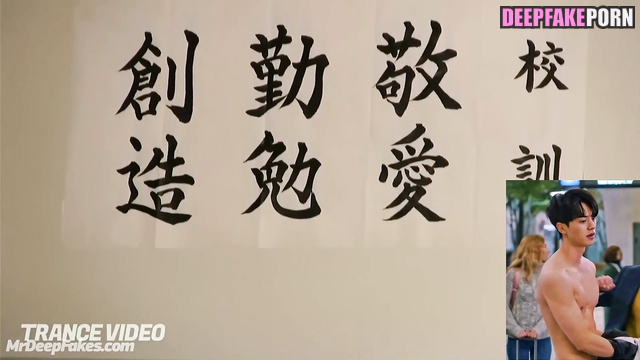 DEEPFAKEPORN
校訓
敬愛
勤勉
創造
TRANCE VIDEO
MrDeepFakes.com